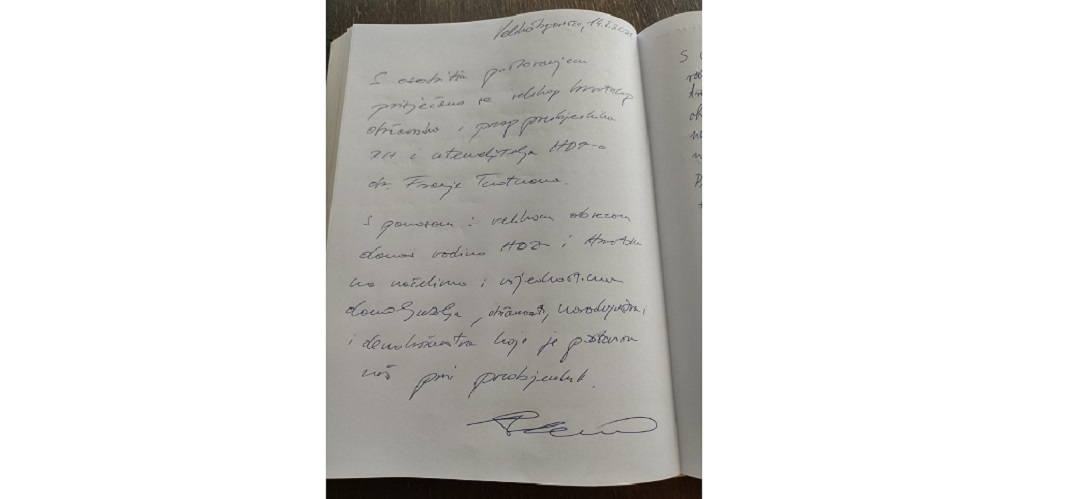 Veliko Trgovišće, 14.5.2021
S osobitim poštovanjem
prisjećamo se velikog hrvatskog
državnika i prvog predsjednika
RH i utemeljitelja HDZ-a
dr. Franje Tuđmana.
S ponosom i velikom obvezom
danas vodimo HDZ i Hrvatsku
na načelima i vrijednostima
domoljublja, državnosti, narodnjaštva,
i demokršćanstva koje je postavio
naš prvi predsjednik.
S